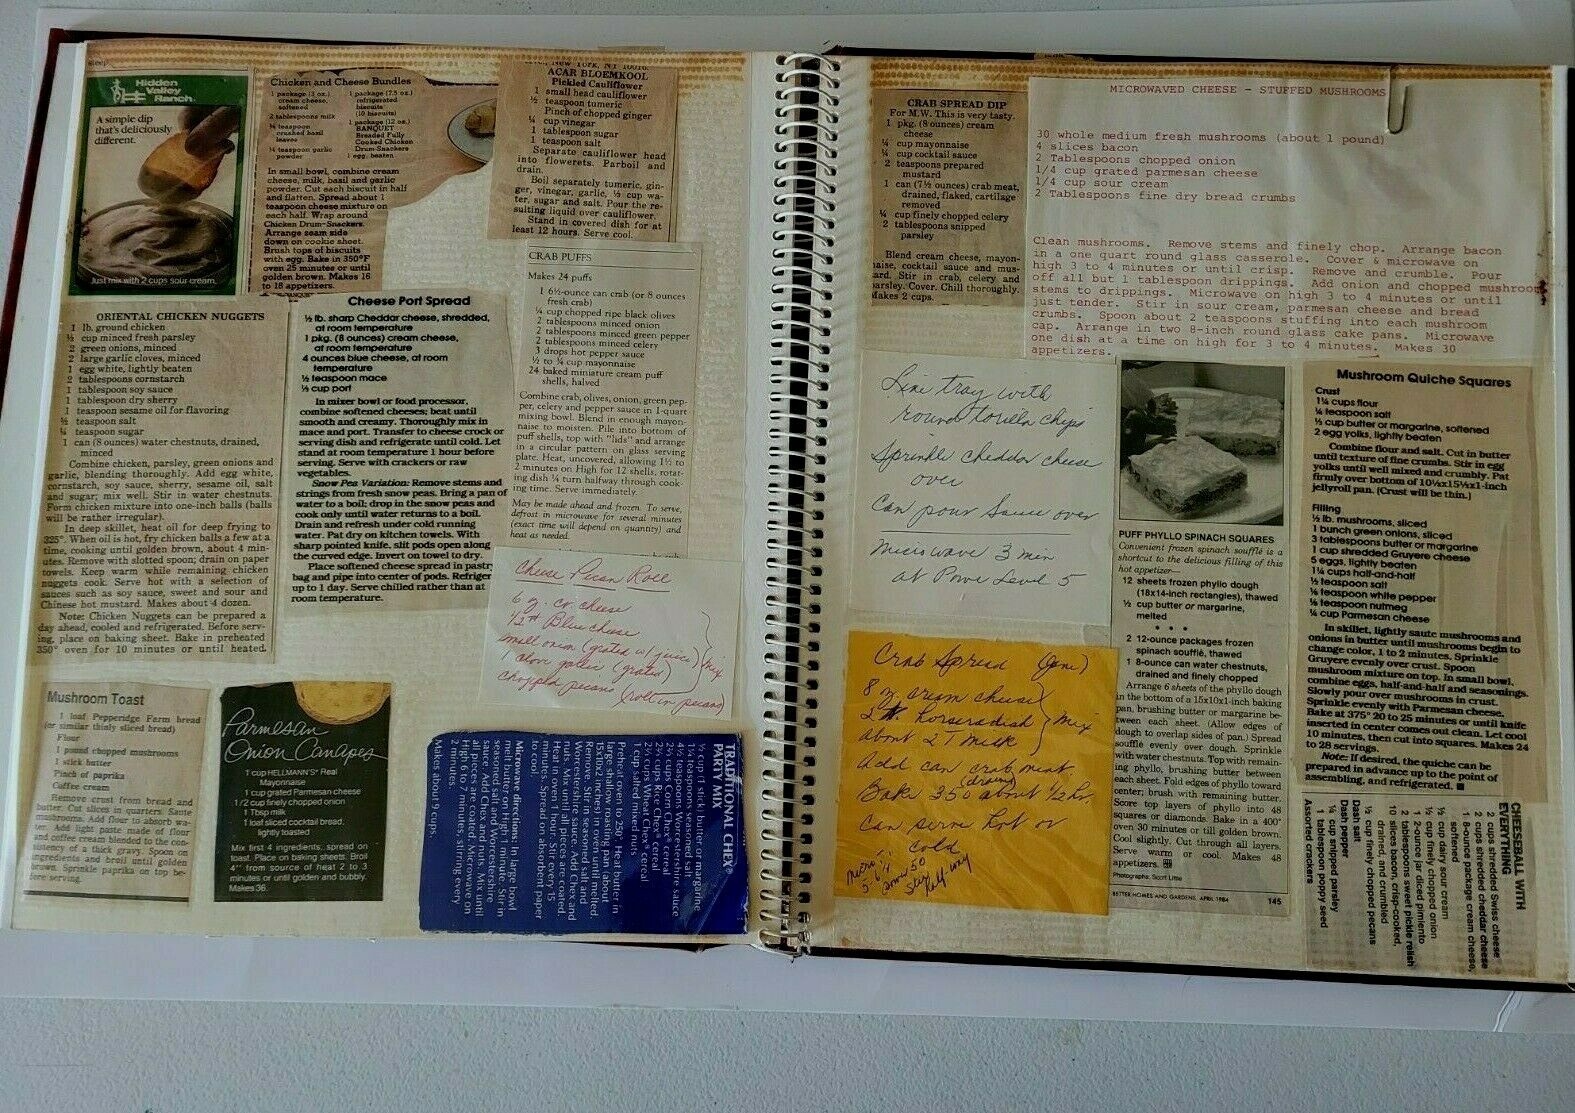 Hidden
Valley
Ranch
A simple dip
that's deliciously
different.
Just mix with 2 cups sour cream.
Chicken and Cheese Bundles
1 package (3 oz.)
cream cheese,
softened
2 tablespoons milk
crushed basil
leaves
¼ teaspoon garlic
powder
1 package (7.5 oz.)
refrigerated
biscuits
(10 biscuits)
1 package (12 oz.)
BANQUET
Breaded Fully
Cooked Chicken
Drum-Snackers
1 egg, beaten
In small bowl, combine cream
cheese, milk, basil and garlic
powder. Cut each biscuit in half
and flatten. Spread about 1
teaspoon cheese mixture on
each half. Wrap around
Chicken Drum-Snackers.
Arrange seam side
down on cookie sheet.
Brush tops of biscuits
with egg. Bake in 350°F
oven 25 minutes or until
golden brown. Makes 16
to 18 appetizers.
New York, NY 10016.
ACAR BLOEMKOOL
Pickled Cauliflower
1 small head cauliflower
½ teaspoon tumeric
Pinch of chopped ginger
¼ cup vinegar
1 tablespoon sugar
1 teaspoon salt
Separate cauliflower head
into flowerets. Parboil and
drain.
Boil separately tumeric, gin-
ger, vinegar, garlic, ½ cup wa-
ter, sugar and salt. Pour the re-
sulting liquid over cauliflower.
Stand in covered dish for at
least 12 hours. Serve cool.
ORIENTAL CHICKEN NUGGETS
1 lb. ground chicken
½ cup minced fresh parsley
2 green onions, minced
2 large garlic cloves, minced
1 egg white, lightly beaten
2 tablespoons cornstarch
1 tablespoon soy sauce
1 tablespoon dry sherry
1 teaspoon sesame oil for flavoring
½ teaspoon salt
¼ teaspoon sugar
1 can (8 ounces) water chestnuts, drained,
minced
Combine chicken, parsley, green onions and
garlic, blending thoroughly. Add egg white,
cornstarch, soy sauce, sherry, sesame oil, salt
and sugar; mix well. Stir in water chestnuts.
Form chicken mixture into one-inch balls (balls
will be rather irregular).
In deep skillet, heat oil for deep frying to
325°. When oil is hot, fry chicken balls a few at a
time, cooking until golden brown, about 4 min-
utes. Remove with slotted spoon; drain on paper
towels. Keep warm while remaining chicken
nuggets cook. Serve hot with a selection of
sauces such as soy sauce, sweet and sour and
Chinese hot mustard. Makes about 4 dozen.
Note: Chicken Nuggets can be prepared a
day ahead, cooled and refrigerated. Before serv-
ing, place on baking sheet. Bake in preheated
350° oven for 10 minutes or until heated.
Cheese Port Spread
½ lb. sharp Cheddar cheese, shredded,
at room temperature
1 pkg. (8 ounces) cream cheese,
at room temperature
4 ounces blue cheese, at room
temperature
½ teaspoon mace
⅓ cup port
In mixer bowl or food processor,
combine softened cheeses; beat until
smooth and creamy. Thoroughly mix in
mace and port. Transfer to cheese crock or
serving dish and refrigerate until cold. Let
stand at room temperature 1 hour before
serving. Serve with crackers or raw
vegetables.
Snow Pea Variation: Remove stems and
strings from fresh snow peas. Bring a pan of
water to a boil; drop in the snow peas and
cook only until water returns to a boil.
Drain and refresh under cold running
water. Pat dry on kitchen towels. With
sharp pointed knife, slit pods open along
the curved edge. Invert on towel to dry.
Place softened cheese spread in pastry
bag and pipe into center of pods. Refriger
up to 1 day. Serve chilled rather than at
room temperature.
CRAB PUFFS
Makes 24 puffs
1 6½-ounce can crab (or 8 ounces
fresh crab)
¼ cup chopped ripe black olives
2 tablespoons minced onion
2 tablespoons minced green pepper
2 tablespoons minced celery
3 drops hot pepper sauce
½ to ¾ cup mayonnaise
24 baked miniature cream puff
shells, halved
Combine crab, olives, onion, green pep-
per, celery and pepper sauce in 1-quart
mixing bowl. Blend in enough mayon-
naise to moisten. Pile into bottom of
puff shells, top with "lids" and arrange
in a circular pattern on glass serving
plate. Heat, uncovered, allowing 1½ to
2 minutes on High for 12 shells, rotat-
ing dish ¼ turn halfway through cook-
ing time. Serve immediately.
May be made ahead and frozen. To serve,
defrost in microwave for several minutes
(exact time will depend on quantity) and
heat as needed.
Cheese Pecan Roll
6 oz. cr. cheese
½ # Blue cheese
small onion (grated w/ juice)
1 clove garlic (grated)
Mix
chopped pecans (roll in pecans)
Mushroom Toast
1 loaf Pepperidge Farm bread
(or similar thinly sliced bread)
Flour
1 pound chopped mushrooms
1 stick butter
Pinch of paprika
Coffee cream
Remove crust from bread and
butter. Cut slices in quarters. Saute
mushrooms. Add flour to absorb wa-
ter. Add light paste made of flour
and coffee cream blended to the con-
sistency of a thick gravy. Spoon on
ingredients and broil until golden
brown. Sprinkle paprika on top be-
fore serving.
Parmesan
Onion Canapes
1 cup HELLMANN'S® Real
Mayonnaise
1 cup grated Parmesan cheese
1/2 cup finely chopped onion
1 Tbsp milk
1 loaf sliced cocktail bread,
lightly toasted
Mix first 4 ingredients, spread on
toast. Place on baking sheets. Broil
4" from source of heat 2 to 3
minutes or until golden and bubbly.
Makes 36.
TRADITIONAL CHEX®
PARTY MIX
½ cup (1 stick) butter or margarine
1¼ teaspoons seasoned salt
4½ teaspoons Worcestershire sauce
2⅔ cups Corn Chex® cereal
2⅔ cups Rice Chex® cereal
2⅔ cups Wheat Chex® cereal
1 cup salted mixed nuts
Preheat oven to 250°. Heat butter in
large shallow roasting pan (about
15x10x2 inches) in oven until melted.
Remove. Stir in seasoned salt and
Worcestershire sauce. Add Chex and
nuts. Mix until all pieces are coated.
Heat in oven 1 hour. Stir every 15
minutes. Spread on absorbent paper
to cool.
Microwave directions: In large bowl
melt butter on High 1 minute. Stir in
seasoned salt and Worcestershire
sauce. Add Chex and nuts. Mix until
all pieces are coated. Microwave on
High 6 to 7 minutes, stirring every
2 minutes.
Makes about 9 cups.
CRAB SPREAD DIP
For M.W. This is very tasty.
1 pkg. (8 ounces) cream
cheese
¼ cup mayonnaise
¼ cup cocktail sauce
2 teaspoons prepared
mustard
1 can (7½ ounces) crab meat,
drained, flaked, cartilage
removed
¼ cup finely chopped celery
2 tablespoons snipped
parsley
Blend cream cheese, mayon-
naise, cocktail sauce and mus-
tard. Stir in crab, celery and
parsley. Cover. Chill thoroughly.
Makes 2 cups.
MICROWAVED CHEESE - STUFFED MUSHROOMS
30 whole medium fresh mushrooms (about 1 pound)
4 slices bacon
2 Tablespoons chopped onion
1/4 cup grated parmesan cheese
1/4 cup sour cream
2 Tablespoons fine dry bread crumbs
Clean mushrooms. Remove stems and finely chop. Arrange bacon
in a one quart round glass casserole. Cover & microwave on
high 3 to 4 minutes or until crisp. Remove and crumble. Pour
off all but 1 tablespoon drippings. Add onion and chopped mushroom
stems to drippings. Microwave on high 3 to 4 minutes or until
just tender. Stir in sour cream, parmesan cheese and bread
crumbs. Spoon about 2 teaspoons stuffing into each mushroom
cap. Arrange in two 8-inch round glass cake pans. Microwave
one dish at a time on high for 3 to 4 minutes. Makes 30
appetizers.
Line tray with
round tortilla chips
Sprinkle cheddar cheese
over
Can pour sauce over
Microwave 3 min
at Power Level 5
Crab Spread (Joni)
8 oz. cream cheese
2 t. horseradish
about 2 T milk
Mix
add can crab meat
(drained)
Bake 350 about ½ hr.
can serve hot or
cold
Micro
5-6
50
Stir
half way
PUFF PHYLLO SPINACH SQUARES
Convenient frozen spinach soufflé is a
shortcut to the delicious filling of this
hot appetizer—
12 sheets frozen phyllo dough
(18x14-inch rectangles), thawed
½ cup butter or margarine,
melted
• • •
2 12-ounce packages frozen
spinach soufflé, thawed
1 8-ounce can water chestnuts,
drained and finely chopped
Arrange 6 sheets of the phyllo dough
in the bottom of a 15x10x1-inch baking
pan, brushing butter or margarine be-
tween each sheet. (Allow edges of
dough to overlap sides of pan.) Spread
soufflé evenly over dough. Sprinkle
with water chestnuts. Top with remain-
ing phyllo, brushing butter between
each sheet. Fold edges of phyllo toward
center; brush with remaining butter.
Score top layers of phyllo into 48
squares or diamonds. Bake in a 400°
oven 30 minutes or till golden brown.
Cool slightly. Cut through all layers.
Serve warm or cool. Makes 48
appetizers.
Photographs: Scott Little
BETTER HOMES AND GARDENS, APRIL 1984 145
Mushroom Quiche Squares
Crust
1¼ cups flour
¼ teaspoon salt
⅓ cup butter or margarine, softened
2 egg yolks, lightly beaten
Combine flour and salt. Cut in butter
until texture of fine crumbs. Stir in egg
yolks until well mixed and crumbly. Pat
firmly over bottom of 10½x15½x1-inch
jellyroll pan. (Crust will be thin.)
Filling
½ lb. mushrooms, sliced
1 bunch green onions, sliced
3 tablespoons butter or margarine
1 cup shredded Gruyere cheese
5 eggs, lightly beaten
1¼ cups half-and-half
½ teaspoon salt
⅛ teaspoon white pepper
⅛ teaspoon nutmeg
¼ cup Parmesan cheese
In skillet, lightly saute mushrooms and
onions in butter until mushrooms begin to
change color, 1 to 2 minutes. Sprinkle
Gruyere evenly over crust. Spoon
mushroom mixture on top. In small bowl,
combine eggs, half-and-half and seasonings.
Slowly pour over mushrooms in crust.
Sprinkle evenly with Parmesan cheese.
Bake at 375° 20 to 25 minutes or until knife
inserted in center comes out clean. Let cool
10 minutes, then cut into squares. Makes 24
to 28 servings.
Note: If desired, the quiche can be
prepared in advance up to the point of
assembling, and refrigerated. ■
CHEESEBALL WITH
EVERYTHING
2 cups shredded Swiss cheese
2 cups shredded cheddar cheese
1 8-ounce package cream cheese,
softened
½ cup dairy sour cream
½ cup finely chopped onion
1 2-ounce jar diced pimiento
2 tablespoons sweet pickle relish
10 slices bacon, crisp-cooked,
drained, and crumbled
½ cup finely chopped pecans
Dash salt
Dash pepper
¼ cup snipped parsley
1 tablespoon poppy seed
Assorted crackers